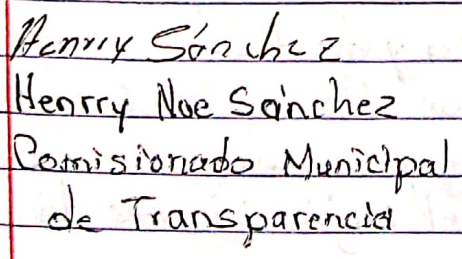 Henrry Sánchez
Henrry Noe Sánchez
Comisionado Municipal
de Transparencia